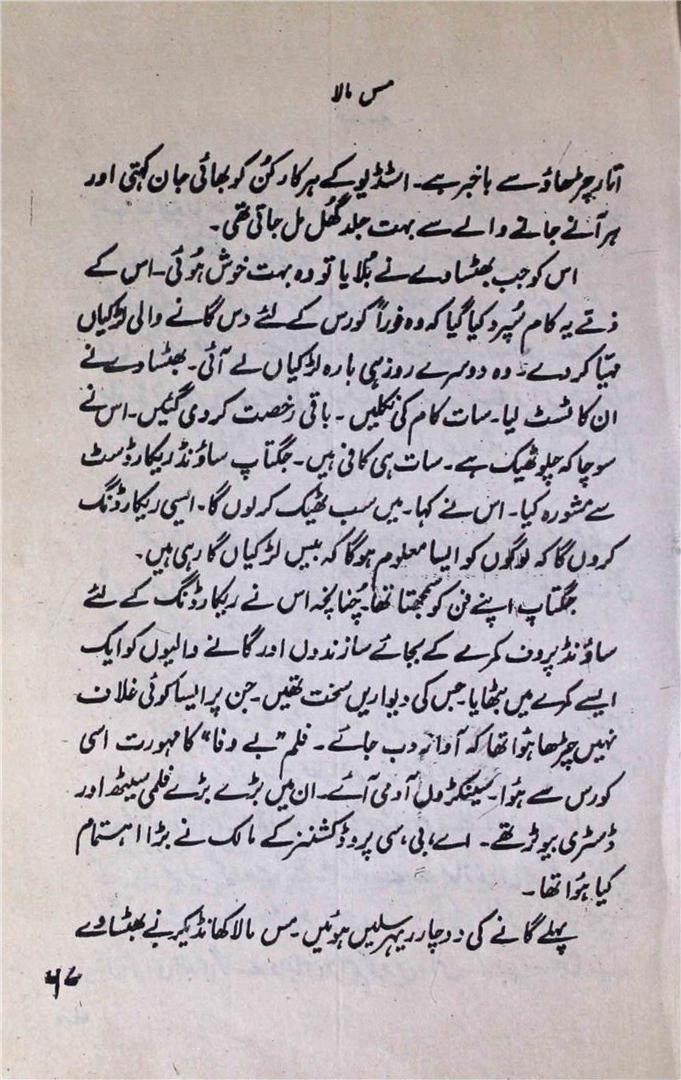 مس مالا
اتار چڑھاؤ سے باخبر ہے۔ اسٹڈیو کے ہر کارکن کو بھائی جان کہتی اور
ہر آنے جانے والے سے بہت جلد گھُل مل جاتی تھی۔
اس کو جب بھٹساوے نے بُلایا تو وہ بہت خوش ہوئی۔ اس کے
ذمّے یہ کام سُپرد کیا گیا کہ وہ فوراً کورس کے لئے دس گانے والی لڑکیاں
مہیّا کردے۔ وہ دوسرے روز ہی بارہ لڑکیاں لے آئی۔ بھٹساوے نے
ان کا ٹسٹ لیا۔ سات کام کی نکلیں۔ باقی رخصت کردی گئیں۔ اس نے
سوچا کہ چلو ٹھیک ہے۔ سات ہی کافی ہیں۔ جگتاپ ساؤنڈ ریکارڈسٹ
سے مشورہ کیا۔ اس نے کہا۔ میں سب ٹھیک کرلوں گا۔ ایسی ریکارڈنگ
کروں گا کہ لوگوں کو ایسا معلوم ہوگا کہ بیس لڑکیاں گا رہی ہیں۔
جگتاپ اپنے فن کو سمجھتا تھا۔ چُنانچہ اس نے ریکارڈنگ کے لئے
ساؤنڈ پروف کمرے کے بجائے سازندوں اور گانے والیوں کو ایک
ایسے کمرے میں بٹھایا۔ جس کی دیواریں سخت تھیں۔ جن پر ایسا کوئی غلاف
نہیں چڑھا ہؤا تھا کہ آواز دب جائے۔ فلم "بے وفا" کا مہورت اسی
کورس سے ہؤا۔ سینکڑوں آدمی آئے۔ ان میں بڑے بڑے فلمی سیٹھ اور
ڈسٹری بیوٹر تھے۔ اے، بی، سی پروڈکشنز کے مالک نے بڑا اہتمام
کیا ہؤا تھا۔
پہلے گانے کی دو چار ریہرسلیں ہوئیں۔ مس مالا کھانڈیکر نے بھٹساوے